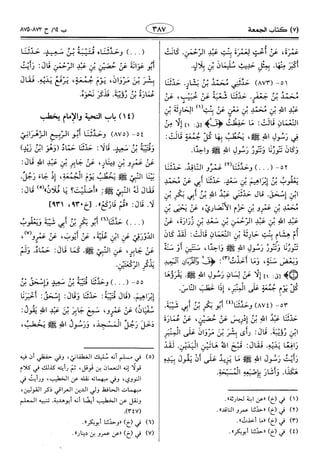 (٧) كتاب الجمعة
٣٨٧
ب ١٤/ ح ٨٧٢-٨٧٥
عَمْرَةَ، عَنْ أُخْتٍ لِعَمْرَةَ بِنْتِ عَبْدِ الرَّحْمٰنِ. كَانَتْ
أَكْبَرَ مِنْهَا. بِمِثْلِ حَدِيثِ سُلَيْمَانَ بْنِ بِلَالٍ.
٥١- (٨٧٣) حَدَّثَنِي مُحَمَّدُ بْنُ بَشَّارٍ. حَدَّثَنَا
مُحَمَّدُ بْنُ جَعْفَرٍ. حَدَّثَنَا شُعْبَةُ عَنْ خُبَيْبٍ، عَنْ
عَبْدِ اللهِ بْنِ مُحَمَّدِ بْنِ مَعْنٍ، عَنْ بِنْتٍ(١) لِحَارِثَةَ بْنِ
النُّعْمَانِ قَالَتْ: مَا حَفِظْتُ ﴿ق﴾ إِلَّا مِنْ
فِي رَسُولِ اللهِ ﷺ، يَخْطُبُ بِهَا كُلَّ جُمُعَةٍ قَالَتْ:
وَكَانَ تَنُّورُنَا وَتَنُّورُ رَسُولِ اللهِ ﷺ وَاحِدًا.
٥٢- (...) وحَدَّثَنَا(٢) عَمْرٌو النَّاقِدُ. حَدَّثَنَا
يَعْقُوبُ بْنُ إِبْرَاهِيمَ بْنِ سَعْدٍ. حَدَّثَنَا أَبِي عَنْ مُحَمَّدِ
بْنِ إِسْحٰقَ. قَالَ حَدَّثَنِي عَبْدُ اللهِ بْنُ أَبِي بَكْرِ بْنِ
مُحَمَّدِ بْنِ عَمْرِو بْنِ حَزْمٍ الْأَنْصَارِيُّ، عَنْ يَحْيَى بْنِ
عَبْدِ اللهِ بْنِ عَبْدِ الرَّحْمٰنِ بْنِ سَعْدِ بْنِ زُرَارَةَ، عَنْ
أُمِّ هِشَامٍ بِنْتِ حَارِثَةَ بْنِ النُّعْمَانِ قَالَتْ: لَقَدْ كَانَ
تَنُّورُنَا وَتَنُّورُ رَسُولِ اللهِ ﷺ وَاحِدًا، سَنَتَيْنِ أَوْ سَنَةً
وَبَعْضَ سَنَةٍ، وَمَا أَخَذْتُ(٣): ﴿ق وَالْقُرْآنِ الْمَجِيدِ﴾
إِلَّا عَنْ لِسَانِ رَسُولِ اللهِ ﷺ. يَقْرَؤُهَا
كُلَّ يَوْمِ جُمُعَةٍ عَلَى الْمِنْبَرِ، إِذَا خَطَبَ النَّاسَ.
٥٣- (٨٧٤) وحَدَّثَنَا(٤) أَبُو بَكْرِ بْنُ أَبِي شَيْبَةَ.
حَدَّثَنَا عَبْدُ اللهِ بْنُ إِدْرِيسَ عَنْ حُصَيْنٍ، عَنْ عُمَارَةَ
ابْنِ رُؤَيْبَةَ. قَالَ: رَأَى بِشْرَ بْنَ مَرْوَانَ عَلَى الْمِنْبَرِ
رَافِعًا يَدَيْهِ. فَقَالَ: قَبَّحَ اللهُ هَاتَيْنِ الْيَدَيْنِ. لَقَدْ
رَأَيْتُ رَسُولَ اللهِ ﷺ مَا يَزِيدُ عَلَى أَنْ يَقُولَ بِيَدِهِ
هٰكَذَا. وَأَشَارَ بِإِصْبَعِهِ الْمُسَبِّحَةِ.
(١) في (خ) «عن ابنة لحارثة».
(٢) في (خ) «حدثنا عمرو الناقد».
(٣) في (خ) «ما أخذت».
(٤) في (خ) «حدثنا أبوبكر».
(...) وحَدَّثَنَاه قُتَيْبَةُ بْنُ سَعِيدٍ. حَدَّثَنَا
أَبُو عَوَانَةَ عَنْ حُصَيْنِ بْنِ عَبْدِ الرَّحْمٰنِ قَالَ: رَأَيْتُ
بِشْرَ بْنَ مَرْوَانَ، يَوْمَ جُمُعَةٍ، يَرْفَعُ يَدَيْهِ. فَقَالَ
عُمَارَةُ بْنُ رُؤَيْبَةَ. فَذَكَرَ نَحْوَهُ.
(١٤) باب التحية والإمام يخطب
٥٤- (٨٧٥) وحَدَّثَنَا أَبُو الرَّبِيعِ الزَّهْرَانِيُّ
وَقُتَيْبَةُ بْنُ سَعِيدٍ. قَالَا: حَدَّثَنَا حَمَّادٌ (وَهُوَ ابْنُ زَيْدٍ)
عَنْ عَمْرِو بْنِ دِينَارٍ، عَنْ جَابِرِ بْنِ عَبْدِ اللهِ قَالَ:
بَيْنَا النَّبِيُّ ﷺ يَخْطُبُ يَوْمَ الْجُمُعَةِ، إِذْ جَاءَ رَجُلٌ.
فَقَالَ لَهُ النَّبِيُّ ﷺ: «أَصَلَّيْتَ؟ يَا فُلَانُ(٥)» قَالَ:
لَا. قَالَ: «قُمْ فَارْكَعْ». [خ:٩٣٠، ٩٣١]
(...) حَدَّثَنَا(٦) أَبُو بَكْرِ بْنُ أَبِي شَيْبَةَ وَيَعْقُوبُ
الدَّوْرَقِيُّ عَنِ ابْنِ عُلَيَّةَ، عَنْ أَيُّوبَ، عَنْ عَمْرٍو(٧)،
عَنْ جَابِرٍ، عَنِ النَّبِيِّ ﷺ. كَمَا قَالَ: حَمَّادٌ. وَلَمْ
يَذْكُرِ الرَّكْعَتَيْنِ.
٥٥- (...) وحَدَّثَنَا قُتَيْبَةُ بْنُ سَعِيدٍ وَإِسْحٰقُ بْنُ
إِبْرَاهِيمَ. (قَالَ قُتَيْبَةُ: حَدَّثَنَا. وَقَالَ: إِسْحٰقُ: أَخْبَرَنَا
سُفْيَانُ) عَنْ عَمْرٍو، سَمِعَ جَابِرَ بْنَ عَبْدِ اللهِ يَقُولُ:
دَخَلَ رَجُلٌ الْمَسْجِدَ، وَرَسُولُ اللهِ ﷺ يَخْطُبُ،
(٥) في مسلم أنه سُليك الغطفاني، وفي حفظي أن فيه
قولًا إنه النعمان بن قوقل، ثم رأيته كذلك في كلام
النووي، وفي مبهماته نقله عن الخطيب، ورأيت في
مبهمات الحافظ ولي الدين العراقي ذكر القولين،
ونقل عن الخطيب أيضًا أنه أبوهدبة. تنبيه المعلم
(٣٤٧)
(٦) في (خ) «وحدثنا أبوبكر».
(٧) في (خ) «عن عمرو بن دينار».